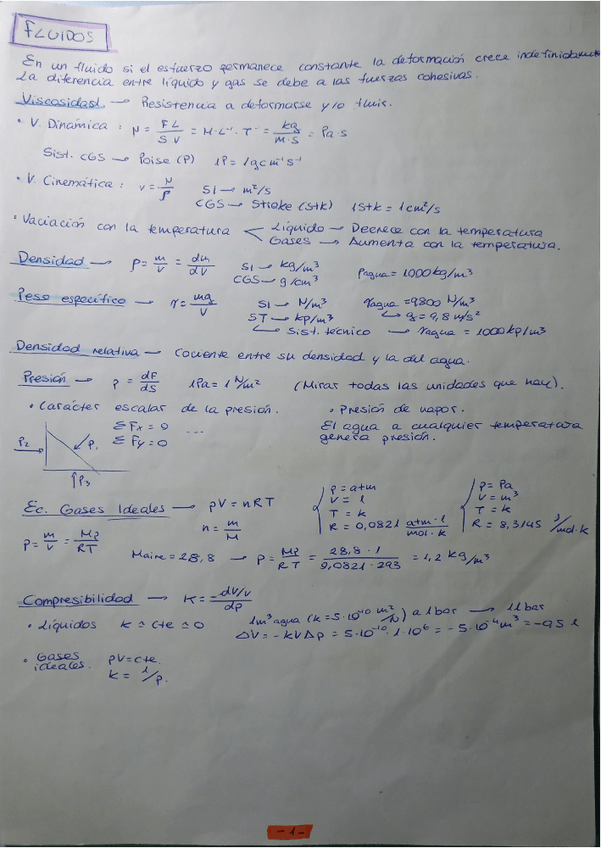 FLUIDOS
En un fluido si el esfuerzo permanece constante la deformación crece indefinidamente
La diferencia entre líquido y gas se debe a las fuerzas cohesivas.
Viscosidad → Resistencia a deformarse y/o fluir.
• V. Dinámica : μ = FL/SV = M·L⁻¹·T⁻¹ = kg/m·s = Pa·s
Sist. CGS → Poise (P) 1P = 1gcm⁻¹s⁻¹
• V. Cinemática : ν = μ/ρ SI → m²/s
CGS → Stoke (Stk) 1Stk = 1cm²/s
• Variación con la temperatura < Líquido → Decrece con la temperatura
Gases → Aumenta con la temperatura.
Densidad → ρ = m/V = dm/dV SI → kg/m³ ρagua = 1000kg/m³
CGS → g/cm³
Peso específico → γ = mg/V SI → N/m³ γagua = 9800 N/m³
ST → kp/m³ ↳ g = 9,8 m/s²
↳ Sist. técnico → γagua = 1000kp/m³
Densidad relativa → Cociente entre su densidad y la del agua.
Presión → p = dF/dS 1Pa = 1 N/m² (Mirar todas las unidades que hay).
• Carácter escalar de la presión. • Presión de vapor.
ΣFx = 0 ... El agua a cualquier temperatura
ΣFy = 0 genera presión.
P₂ → P₁ ↑P₃
Ec. Gases Ideales → pV = nRT
n = m/M
p = atm
V = l
T = k
R = 0,0821 atm·l/mol·k
p = Pa
V = m³
T = k
R = 8,3145 J/mol·k
ρ = m/V = Mp/RT
Maire = 28,8 → ρ = Mp/RT = 28,8·1/0,0821·293 = 1,2 kg/m³
Compresibilidad → K = -dV/V/dp
• Líquidos k ≃ cte ≃ 0 1m³ agua (k = 5·10⁻¹⁰ m²/N) a 1bar → 11bar
ΔV = -kVΔp = 5·10⁻¹⁰·1·10⁶ = -5·10⁻⁴m³ = -0,5 l
• Gases ideales. pV = cte.
k = 1/p.
- 1 -